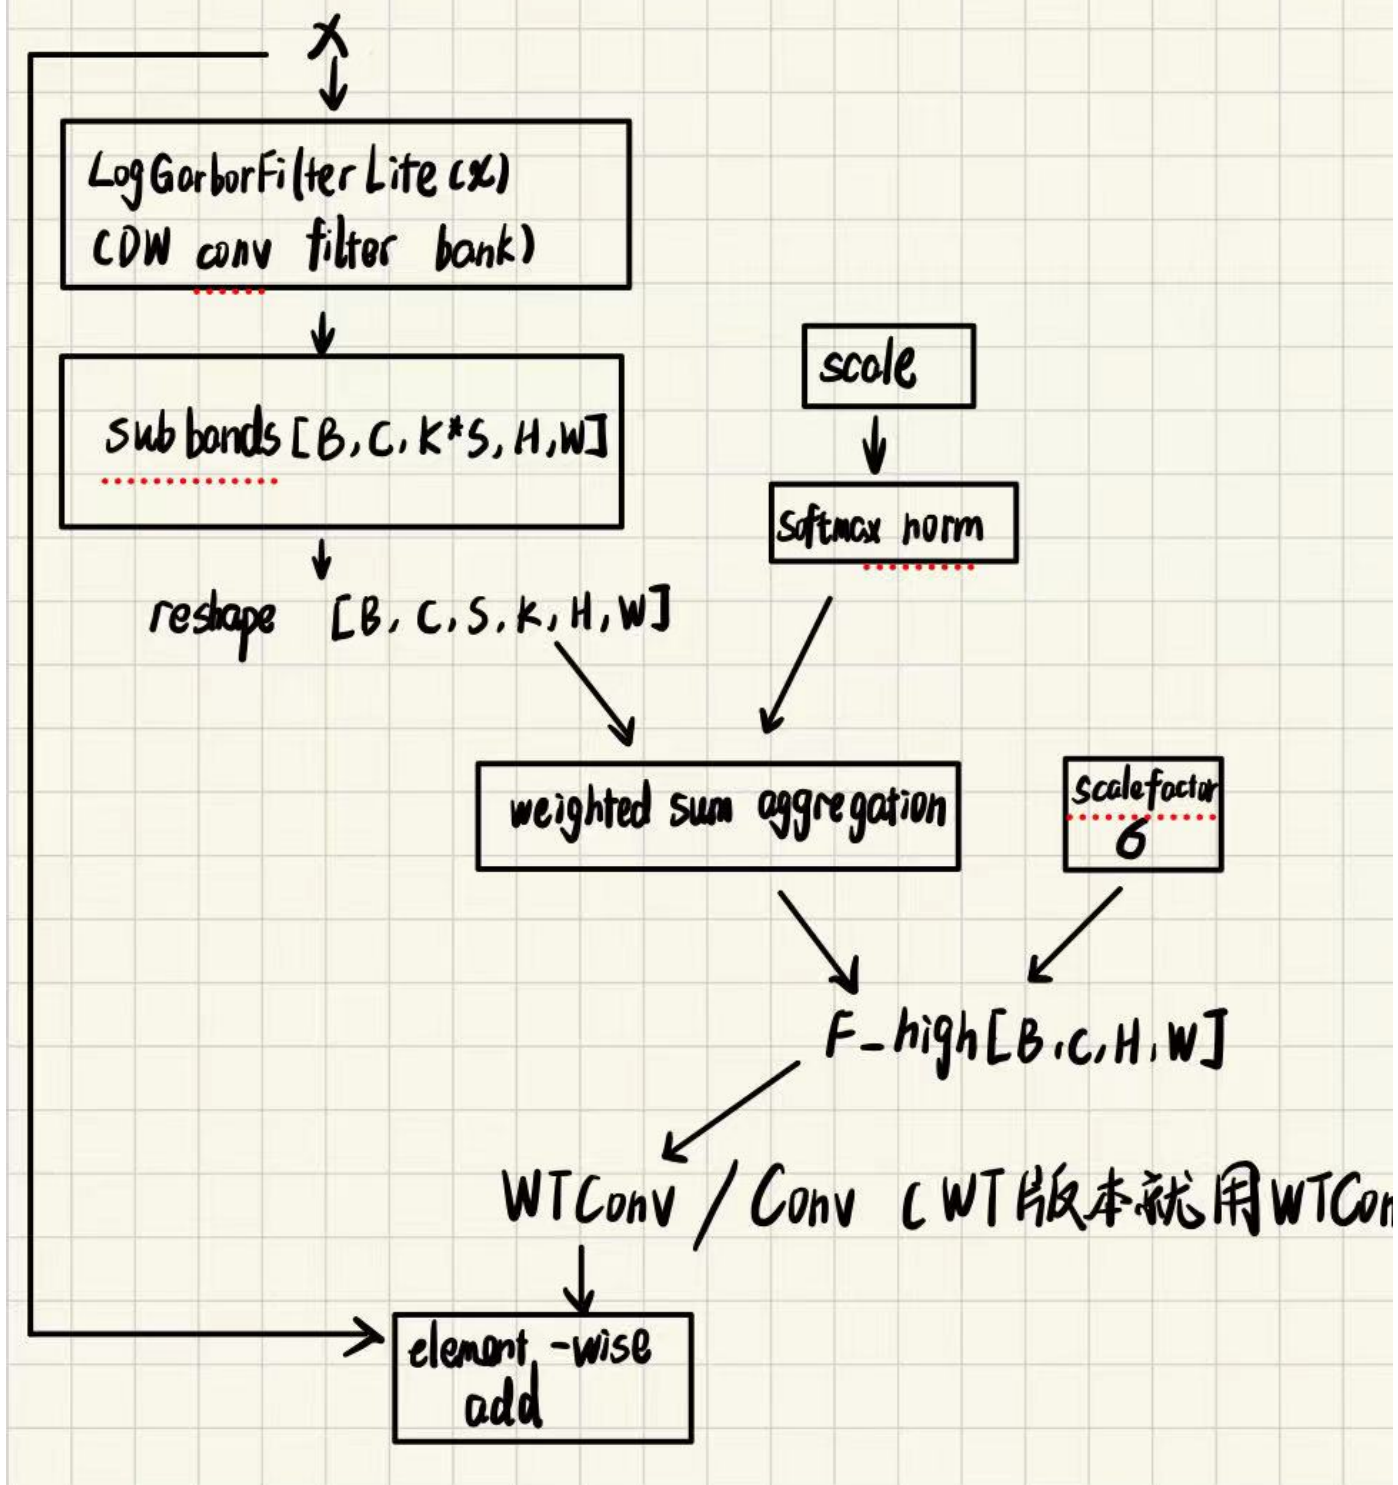 x
LogGarborFilterLite(x)
(DW conv filter bank)
subbands[B,C,K*S,H,W]
scale
softmax norm
reshape [B,C,S,K,H,W]
weighted sum aggregation
scalefactor
6
F_high[B,C,H,W]
WTConv / Conv (WT版本就用WTCon
element-wise
add